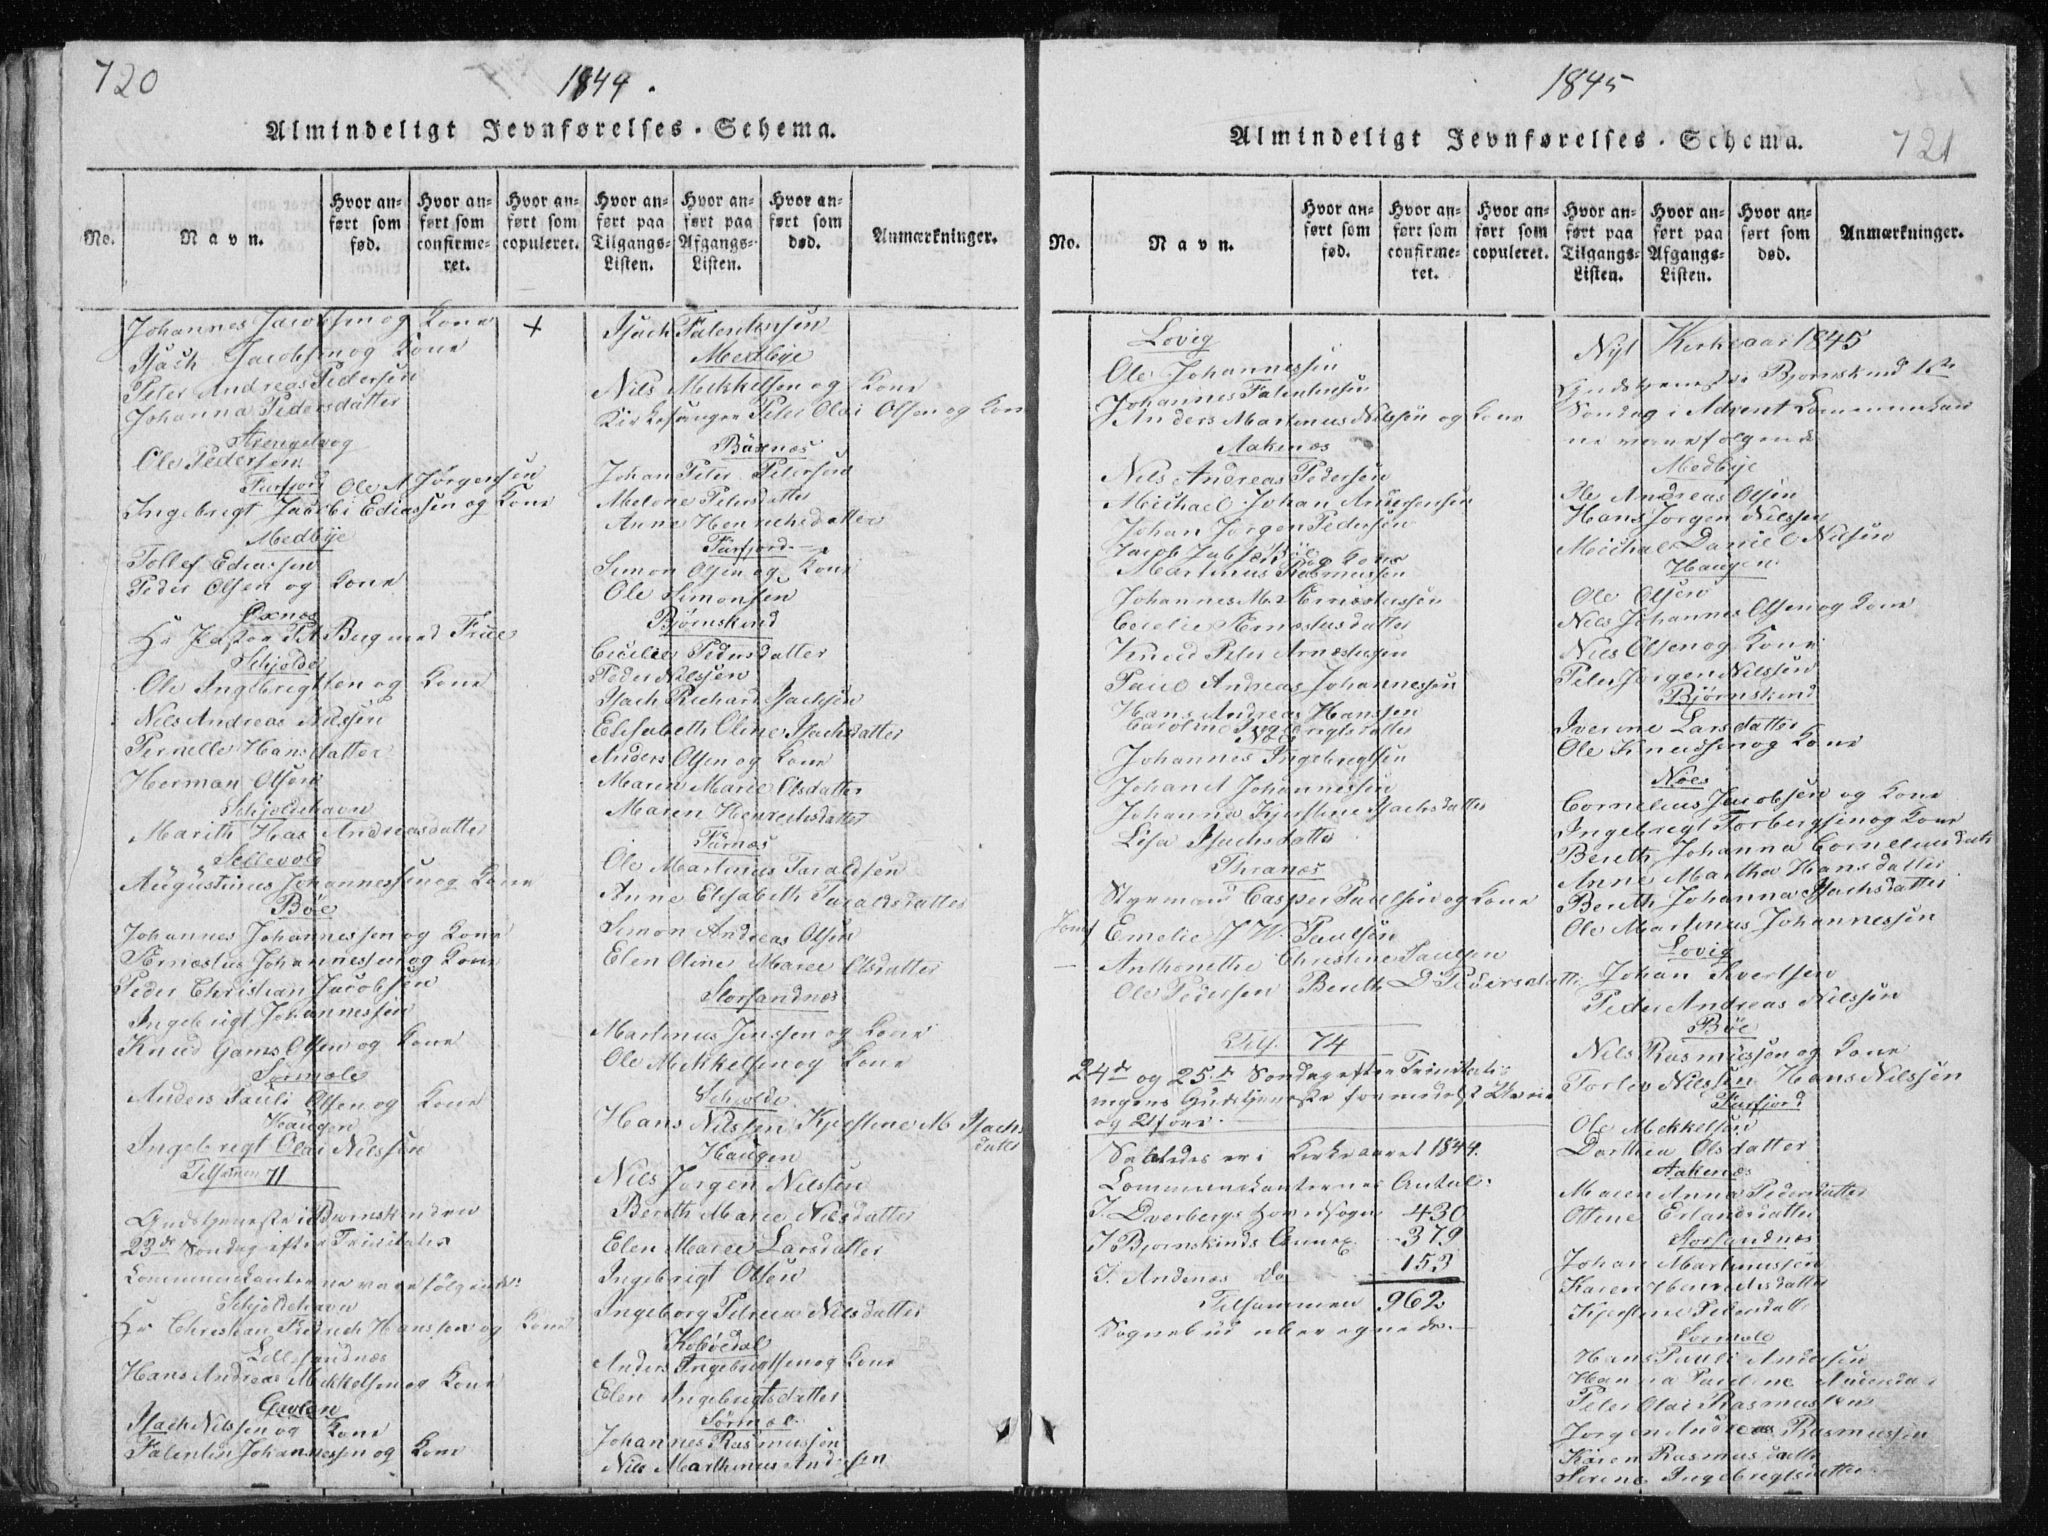 720
1844.
Almindeligt Jevnførelses-Schema.
No.
Navn.
Hvor anført som fød.
Hvor anført som confirmeret.
Hvor anført som copuleret.
Hvor anført paa Tilgangs-Listen.
Hvor anført paa Afgangs-Listen.
Hvor anført som død.
Anmærkninger.
Johannes Jacobsen og Kone +
Isach Jacobsen og Kone
Peter Andreas Pedersen
Johanna Pedersdatter
Ole Pedersen
Furfjord Ole A Jørgensen
Ingebrigt Jacobi Ediassen og Kone
Medbye
Tollef Ediassen
Peder Olsen og Kone
Øxnæs
Hr Pastor Berg med Frue
Schjolde
Ole Ingebrigtsen og Kone
Nils Andreas Nilssen
Pernelle Hansdatter
Herman Olsen
Schjoldehavn
Marith Andreasdatter
Sellevold
Augustinus Johannessen og Kone
Bøe
Johannes Johannessen og Kone
Ærnæstus Johannessen og Kone
Peder Christian Jacobsen
Ingebrigt Johannessen
Knud Gams Olsen og Kone
Sørmole
Anders Pauli Olsen og Kone
Haugen
Ingebrigt Olai Nilssen
Tilsamen 71
Gudstjeneste i Bjørnskinden
23de Søndag efter Trinitatis
Kommunikanterne vare følgende:
Schjoldehavn
Hr Christian Fredrich Hanssen og Kone
Lillesandnæs
Hans Andreas Mikkelsen og Kone
Gavlen
Isach Nilssen og Kone
Falentin Johannessen og Kone
Isach Falentinsen
Medbye
Nils Mikkelsen og Kone
Kirkesanger Peter Olai Olsen og Kone
Buxnæs
Johan Peter Petersen
Melene Petersdatter
Anne Henrichsdatter
Furfjord
Simon Olsen og Kone
Ole Simonsen
Bjørnskind
Cecilie Pedersdatter
Peder Nilssen
Isach Richard Isachsen
Elisabeth Oline Isachsdatter
Anders Olsen og Kone
Maren Marie Olsdatter
Maren Henrechsdatter
Furnæs
Ole Martinus Taraldsen
Anne Elisabeth Taraldsdatter
Simon Andreas Olsen
Elen Oline Maree Olsdatter
Storsandnæs
Martinus Jenssen og Kone
Ole Mikkelsen og Kone
Schjolde
Hans Nilssen Kjestine M Isachsdatter
Haugen
Nils Jørgen Nilssen
Bereth Marie Nilsdatter
Elen Maree Larsdatter
Ingebrigt Olsen
Ingeborg Petrea Nilsdatter
Kobbedal
Anders Ingebrigtsen og Kone
Elen Ingebrigtsdatter
Sørmoe
Johannes Rasmussen
Nils Marthinus Andersen
1845
721
Almindeligt Jevnførelses-Schema.
No.
Navn.
Hvor anført som fød.
Hvor anført som confirmeret.
Hvor anført som copuleret.
Hvor anført paa Tilgangs-Listen.
Hvor anført paa Afgangs-Listen.
Hvor anført som død.
Anmærkninger.
Lovig
Ole Johannessen
Johannes Falentinsen
Anders Martinus Nilssen og Kone
Aaknæs
Nils Andreas Pedersen
Michael Johan Andersen
Johan Jørgen Pedersen
Bøe
Jacob og Kone
Martinus Rasmussen
Johannes M. Ærnæstussen
Cecelie Ærnæstusdatter
Knud Peter Arnestussen
Paul Andreas Johannessen
Hans Andreas Hanssen
Caroline Ingebrigtsdatter
Nøes
Johannes Ingebrigtsen
Johan Johannessen
Johanna Kjestine Isachsdatter
Lisa Isachsdatter
Thranæs
Styrmand Casper Paulsen og Kone
Jomf Emelie J W. Paulsen
— Anthonethe Christine Paulsen
Ole Pedersen Bereth D Pedersdatter
Tils. 74
24de og 25de Søndag efter Trinitatis
ingen Gudstjeneste formedelst Uveir
og Ufør.
Saaledes er i Kirkeaaret 1844
Kommunikanternes Antal:
I. Dverbergs Hovedsogn 430
I Bjørnskinds Annex 379
I. Andenæs Do 153
Tilsammen 962
Sognebud uberegnede.
Nyt Kirkeaar 1845
Gudstjeneste i Bjørnskind 1ste
Søndag i Advent Kommunikan
ne vare følgende
Medbye
Ole Andreas Olsen
Hans Jørgen Nilssen
Michael Daniel Nilsen
Haugen
Ole Olsen
Nils Johannes Olsen og Kone
Nils Olsen og Kone
Peter Jørgen Nilssen
Bjørnskind
Iverine Larsdatter
Ole Knudsen og Kone
Nøes
Cornelius Jacobsen og Kone
Ingebrigt Torbergsen og Kone
Bereth Johanna Corneliusdatt
Anne Martha Hansdatter
Bereth Johanna Isachsdatter
Ole Martinus Johannessen
Lovig
Johan Sivertsen
Peder Andreas Nilssen
Bøe
Nils Rasmussen og Kone
Torlev Nilssen Hans Nilssen
Furfjord
Ole Mekkelsen
Dorthea Olsdatter
Aaknæs
Maren Anna Pedersdatter
Otene Erlandsdatter
Storsandnæs
Johan Martinussen
Karen Henriksdatter
Kjestine Pedersdatt
Sørmole
Hans Pauli Andersen
Hanna Andersda
Peter Olai Rasmussen
Jørgen Andreas Rasmussen
Karen Rasmusdatter
Serene Ingebrigtsdatter